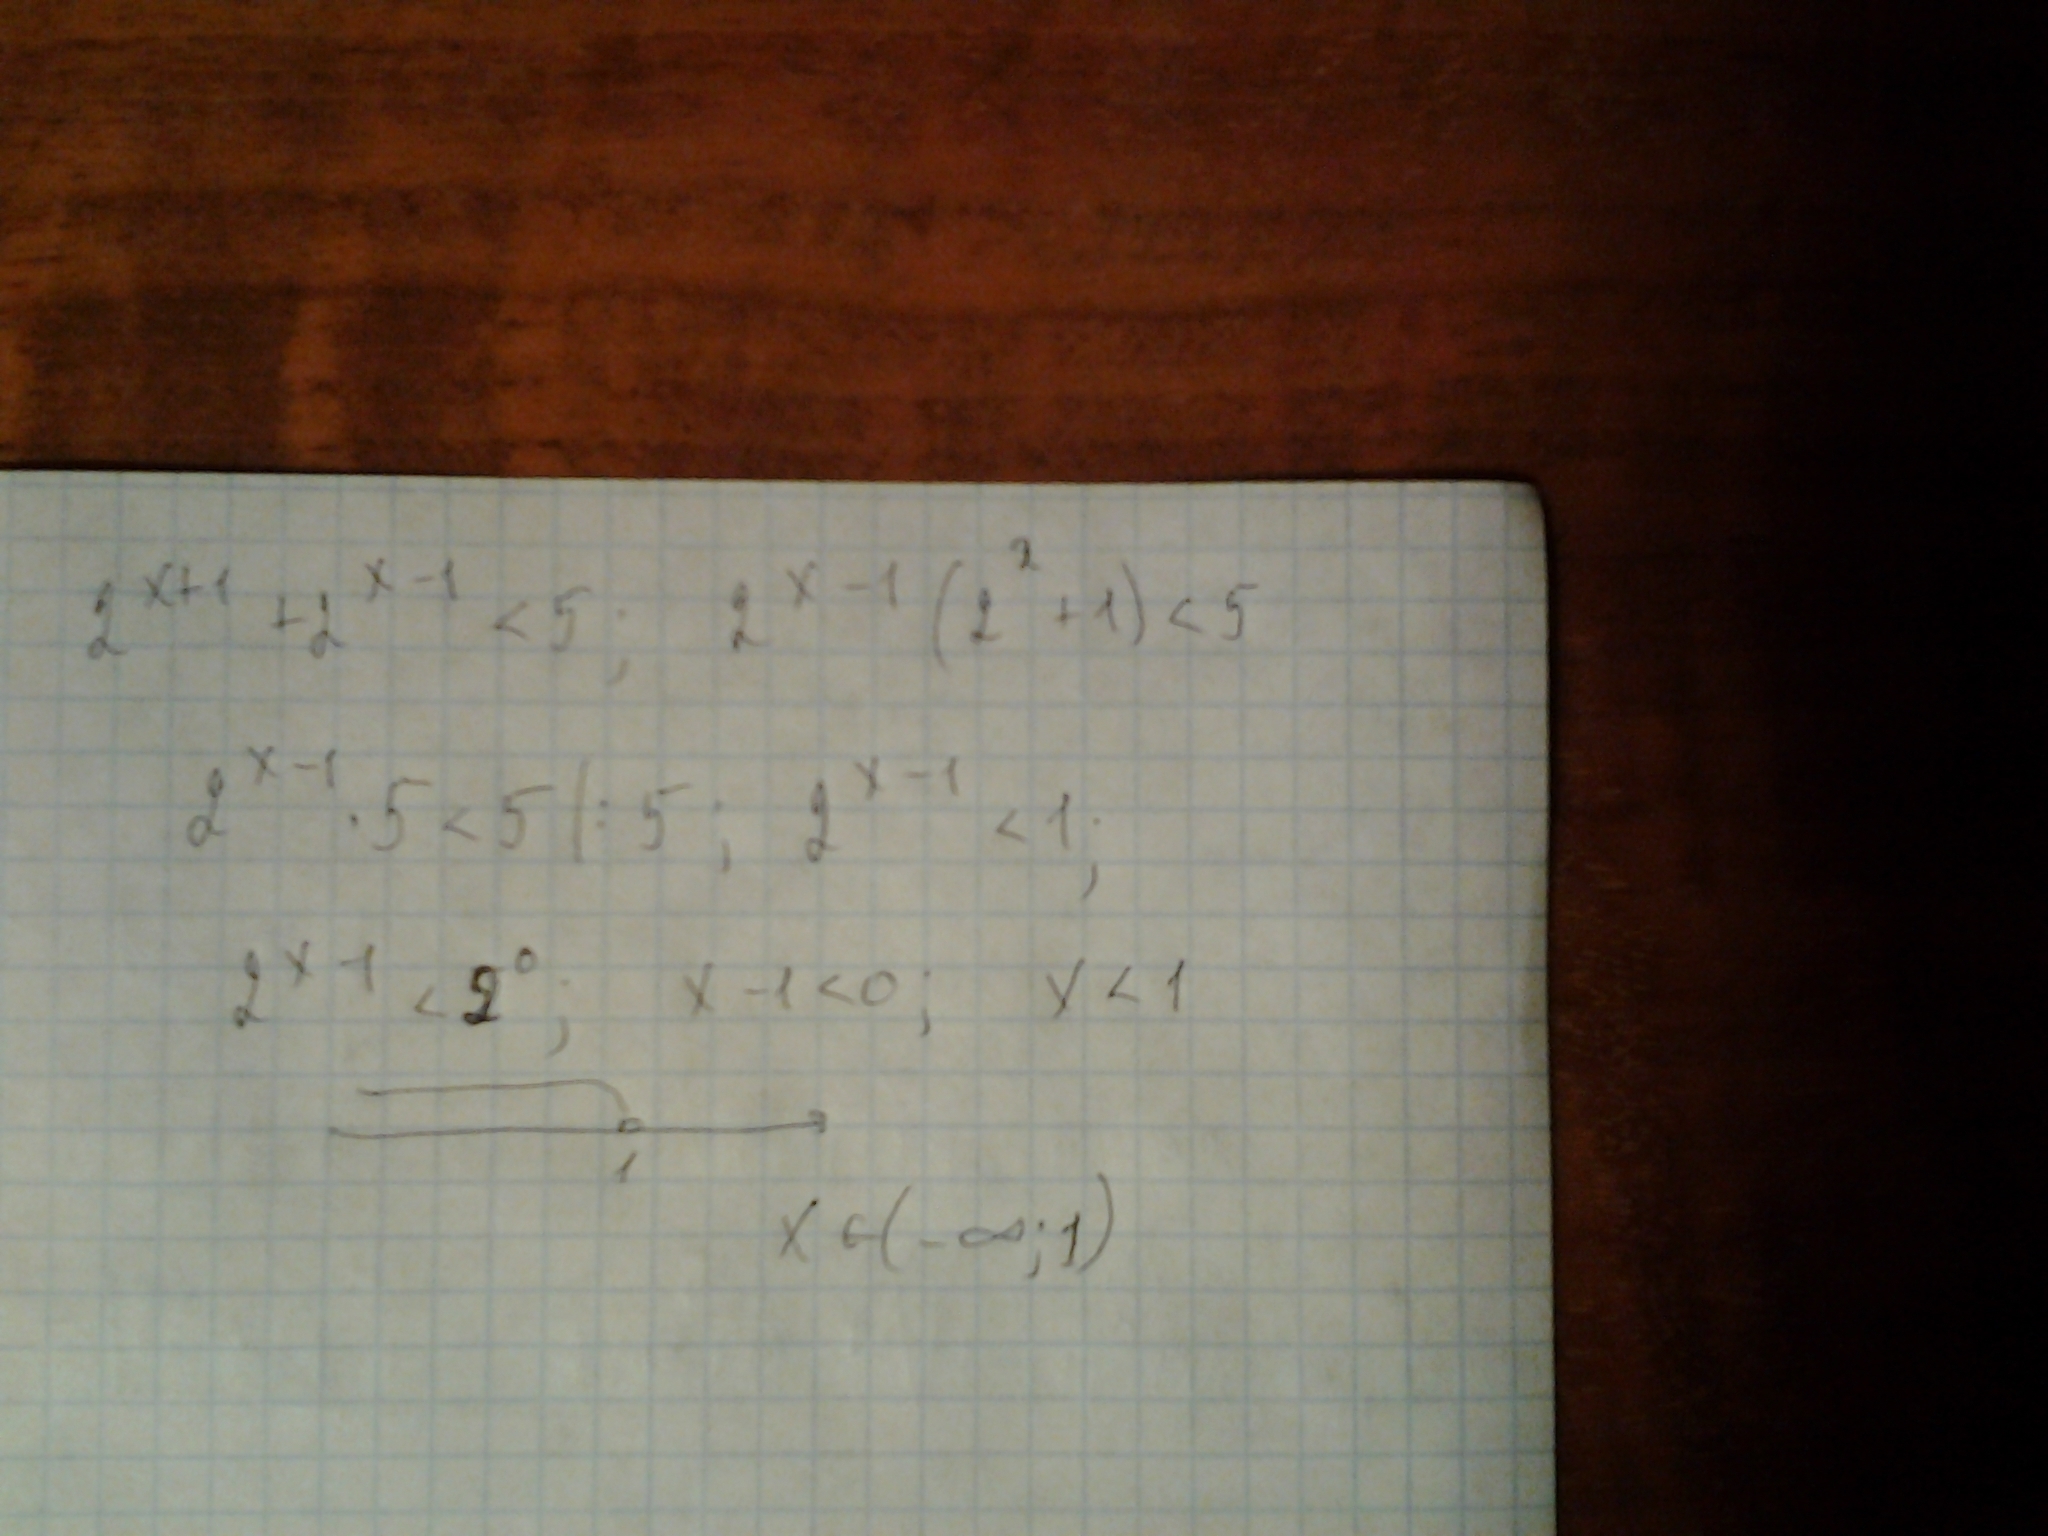 2^{x+1} + 2^{x-1} < 5; 2^{x-1} (2^2 + 1) < 5
2^{x-1} · 5 < 5 |: 5; 2^{x-1} < 1;
2^{x-1} < 2^0; x - 1 < 0; x < 1
1
x ∈ (-∞; 1)